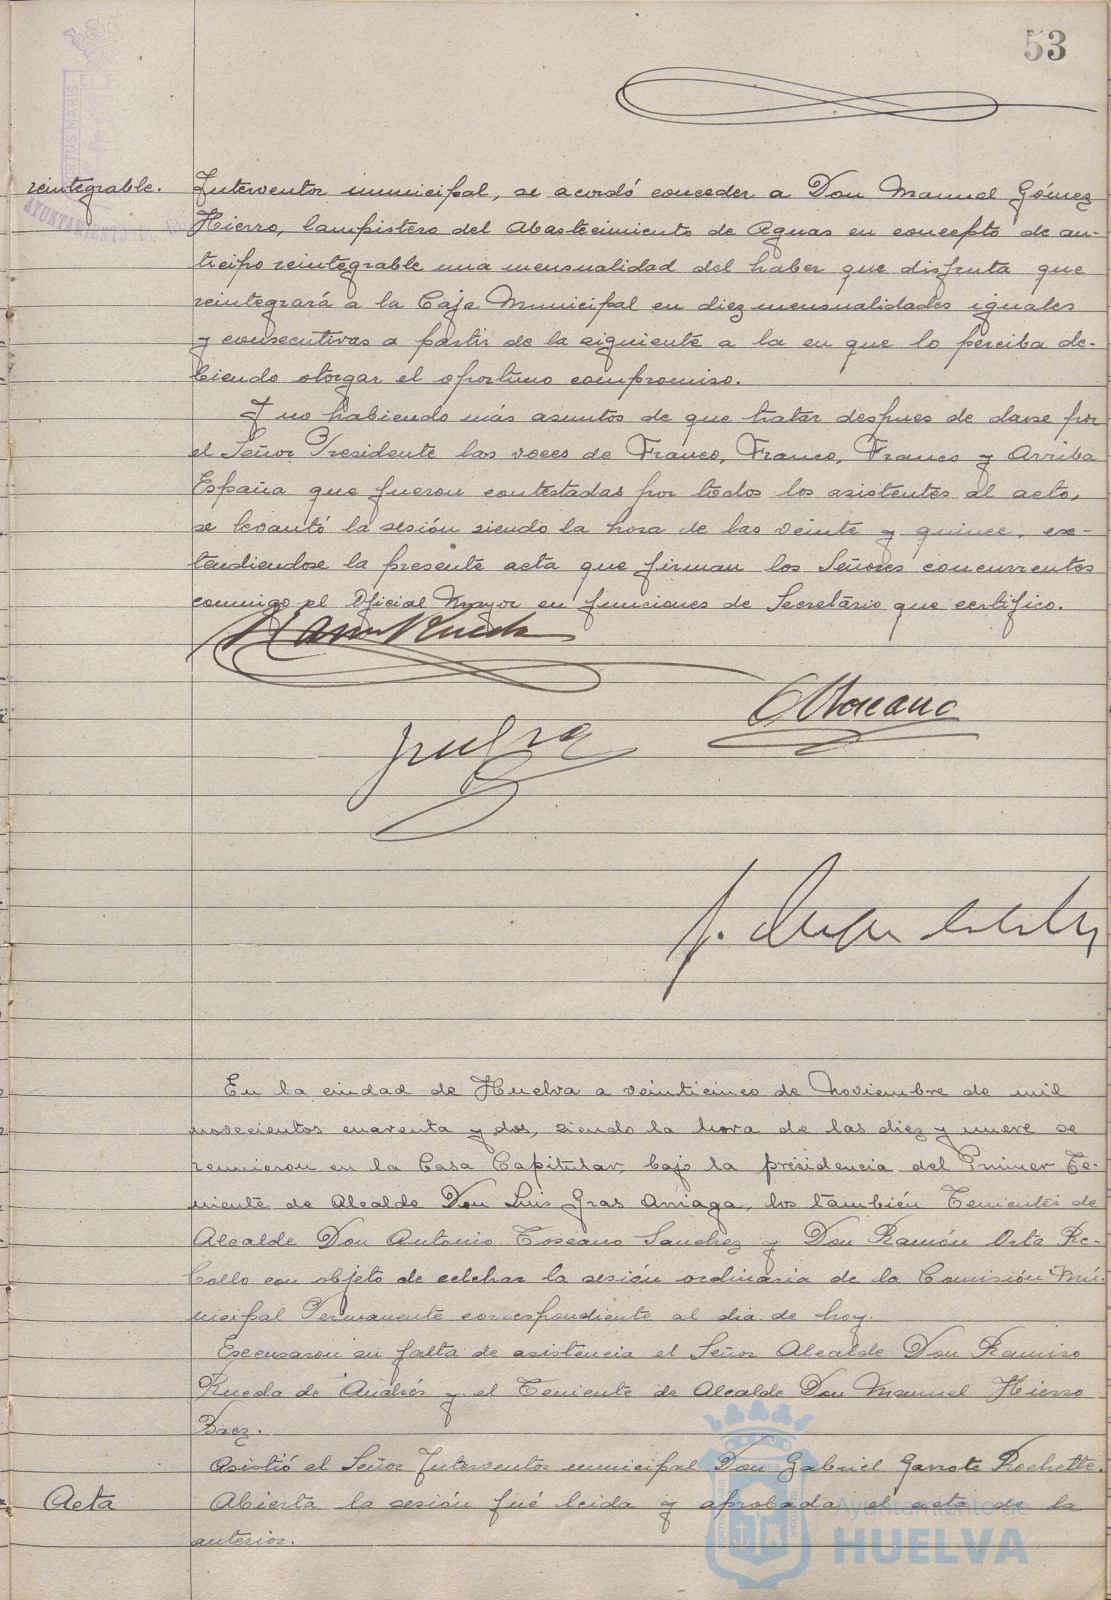 53
reintegrable. Interventor municipal, se acordó conceder a Don Manuel Gómez
Hierro, lampistero del Abastecimiento de Aguas en concepto de an-
ticipo reintegrable una mensualidad del haber que disfruta que
reintegrará a la Caja Municipal en diez mensualidades iguales
y consecutivas a partir de la siguiente a la en que lo perciba de-
biendo otorgar el oportuno compromiso.
Y no habiendo más asuntos de que tratar despues de darse por
el Señor Presidente las voces de Franco, Franco, Franco y Arriba
España que fueron contestadas por todos los asistentes al acto,
se levantó la sesión siendo la hora de las veinte y quince, ex-
tendiendose la presente acta que firman los Señores concurrentes
conmigo el Oficial Mayor en funciones de Secretário que certifico.
En la ciudad de Huelva a veinticinco de Noviembre de mil
novecientos cuarenta y dos, siendo la hora de las diez y nueve se
reunieron en la Casa Capitular, bajo la presidencia del Primer Te-
niente de Alcalde Don Luis Gras Arriaga, los también Tenientes de
Alcalde Don Antonio Toscano Sanchez y Don Ramón Orta Re-
bollo con objeto de celebrar la sesión ordinaria de la Comisión Mu-
nicipal Permanente correspondiente al dia de hoy.
Excusaron su falta de asistencia el Señor Alcalde Don Ramiro
Rueda de Andrés y el Teniente de Alcalde Don Manuel Hierro
Baez.
Asistió el Señor Interventor municipal Don Gabriel Garrote Rochette.
Acta Abierta la sesión fué leida y aprobada el acta de la
anterior.
Ayuntamiento de
HUELVA